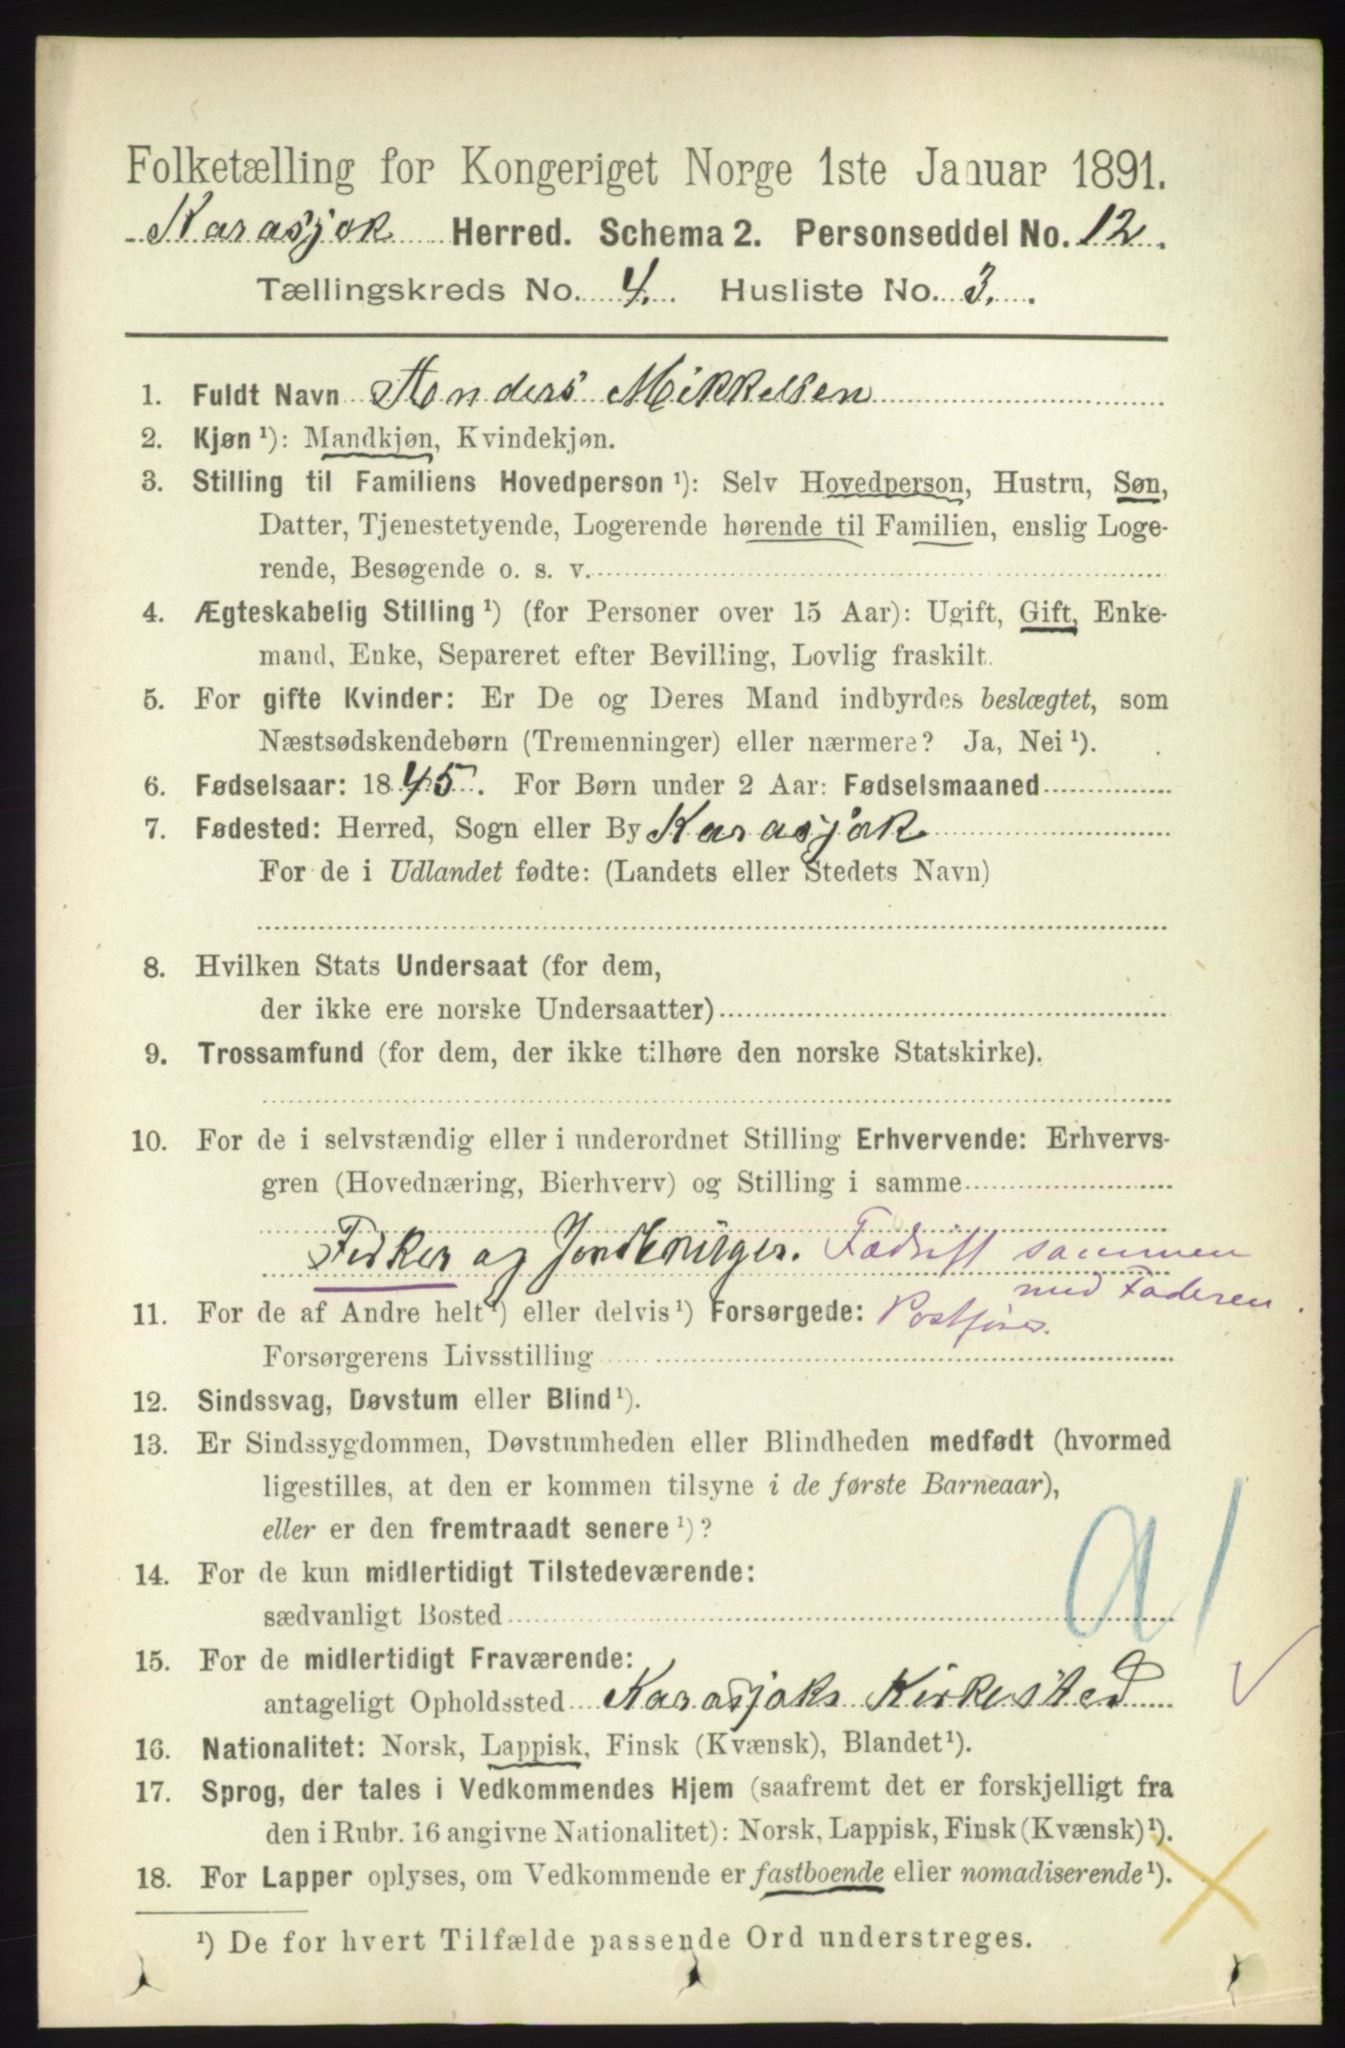 Folketælling for Kongeriget Norge 1ste Januar 1891.
Karasjok Herred. Schema 2. Personseddel No. 12.
Tællingskreds No. 4. Husliste No. 3.
1. Fuldt Navn Anders Mikkelsen
2. Kjøn ¹): Mandkjøn, Kvindekjøn.
3. Stilling til Familiens Hovedperson ¹): Selv Hovedperson, Hustru, Søn,
Datter, Tjenestetyende, Logerende hørende til Familien, enslig Loge-
rende, Besøgende o. s. v.
4. Ægteskabelig Stilling ¹) (for Personer over 15 Aar): Ugift, Gift, Enke-
mand, Enke, Separeret efter Bevilling, Lovlig fraskilt.
5. For gifte Kvinder: Er De og Deres Mand indbyrdes beslægtet, som
Næstsødskendebørn (Tremenninger) eller nærmere? Ja, Nei ¹).
6. Fødselsaar: 1845. For Børn under 2 Aar: Fødselsmaaned
7. Fødested: Herred, Sogn eller By Karasjok
For de i Udlandet fødte: (Landets eller Stedets Navn)
8. Hvilken Stats Undersaat (for dem,
der ikke ere norske Undersaatter)
9. Trossamfund (for dem, der ikke tilhøre den norske Statskirke).
10. For de i selvstændig eller i underordnet Stilling Erhvervende: Erhvervs-
gren (Hovednæring, Bierhverv) og Stilling i samme
Fisker og Jordbruger. Fædrift sammen
med Faderen.
11. For de af Andre helt ¹) eller delvis ¹) Forsørgede: Postfører.
Forsørgerens Livsstilling
12. Sindssvag, Døvstum eller Blind ¹).
13. Er Sindssygdommen, Døvstumheden eller Blindheden medfødt (hvormed
ligestilles, at den er kommen tilsyne i de første Barneaar),
eller er den fremtraadt senere ¹)?
14. For de kun midlertidigt Tilstedeværende:
sædvanligt Bosted
15. For de midlertidigt Fraværende:
antageligt Opholdssted Karasjoks Kirkested
16. Nationalitet: Norsk, Lappisk, Finsk (Kvænsk), Blandet ¹).
17. Sprog, der tales i Vedkommendes Hjem (saafremt det er forskjelligt fra
den i Rubr. 16 angivne Nationalitet): Norsk, Lappisk, Finsk (Kvænsk) ¹).
18. For Lapper oplyses, om Vedkommende er fastboende eller nomadiserende ¹).
¹) De for hvert Tilfælde passende Ord understreges.